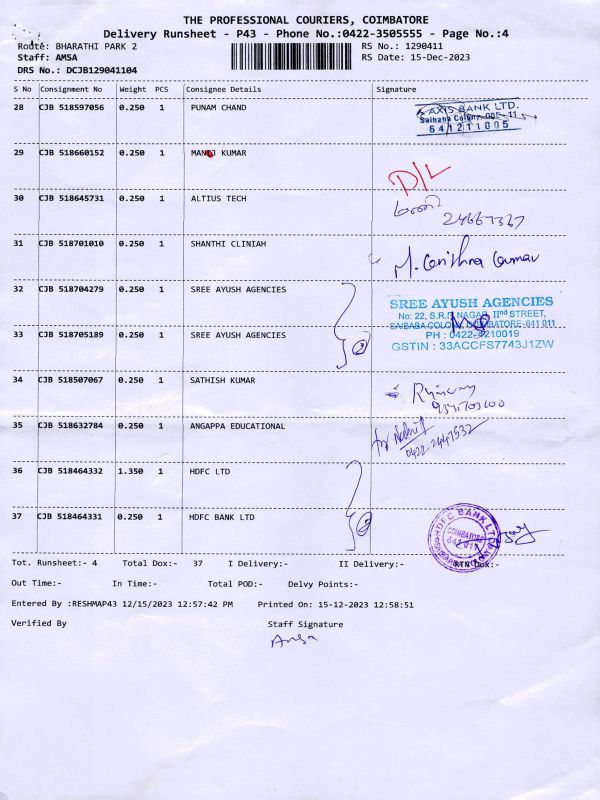 THE PROFESSIONAL COURIERS, COIMBATORE
Delivery Runsheet - P43 - Phone No.:0422-3505555 - Page No.:4
Route: BHARATHI PARK 2 RS No.: 1290411
Staff: AMSA RS Date: 15-Dec-2023
DRS No.: DCJB129041104
S No Consignment No Weight PCS Consignee Details Signature
28 CJB 518597056 0.250 1 PUNAM CHAND
AXIS BANK LTD.
Saibaba Colony CBE-11
641211005
29 CJB 518660152 0.250 1 MANOJ KUMAR
D/L
30 CJB 518645731 0.250 1 ALTIUS TECH
24667367
31 CJB 518701010 0.250 1 SHANTHI CLINIAH
32 CJB 518704279 0.250 1 SREE AYUSH AGENCIES
33 CJB 518705189 0.250 1 SREE AYUSH AGENCIES
2
SREE AYUSH AGENCIES
No: 22, S.R.P. NAGAR, IInd STREET,
SAIBABA COLONY, COIMBATORE-641 011
PH : 0422-4210019
GSTIN : 33ACCFS7743J1ZW
34 CJB 518507067 0.250 1 SATHISH KUMAR
35 CJB 518632784 0.250 1 ANGAPPA EDUCATIONAL
0422-2447532
36 CJB 518464332 1.350 1 HDFC LTD
37 CJB 518464331 0.250 1 HDFC BANK LTD
2
HDFC BANK LTD
COIMBATORE
641 011
Tot. Runsheet:- 4 Total Dox:- 37 I Delivery:- II Delivery:- RTN Dox:-
Out Time:- In Time:- Total POD:- Delvy Points:-
Entered By :RESHMAP43 12/15/2023 12:57:42 PM Printed On: 15-12-2023 12:58:51
Verified By Staff Signature
Amsa